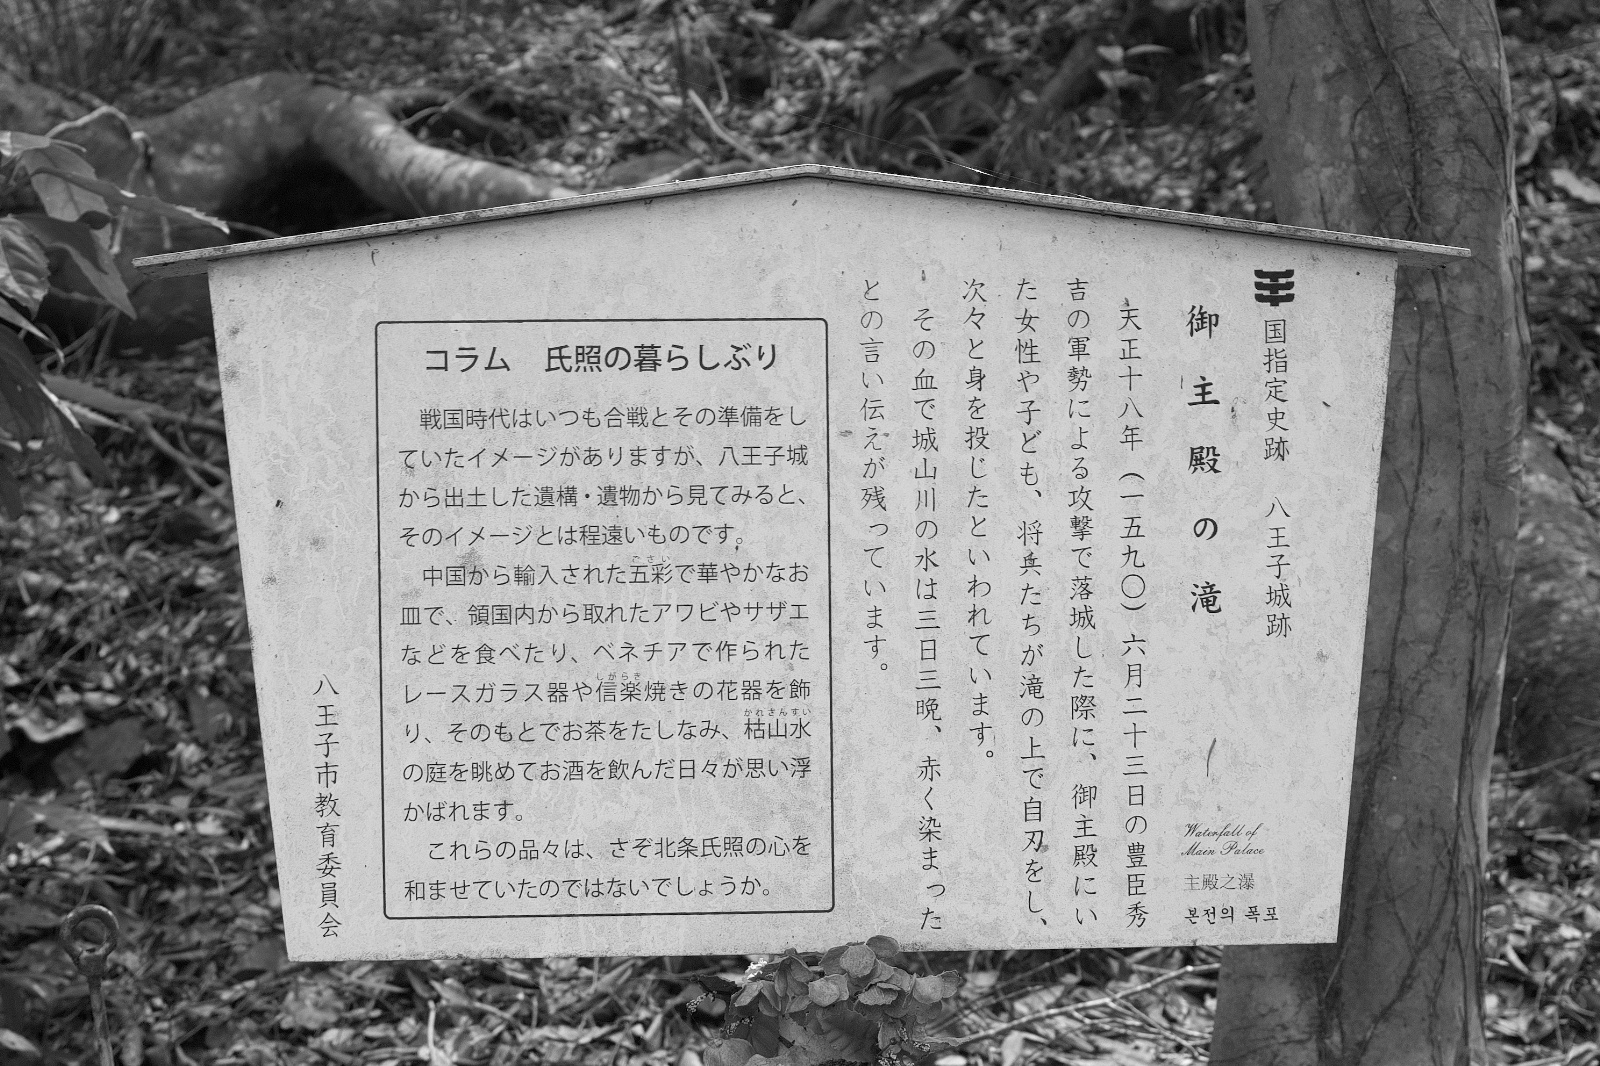 国指定史跡　八王子城跡
御主殿の滝
Waterfall of
Main Palace
主殿之瀑
본전의 폭포
天正十八年（一五九〇）六月二十三日の豊臣秀
吉の軍勢による攻撃で落城した際に、御主殿にい
た女性や子ども、将兵たちが滝の上で自刃をし、
次々と身を投じたといわれています。
その血で城山川の水は三日三晩、赤く染まった
との言い伝えが残っています。
コラム　氏照の暮らしぶり
戦国時代はいつも合戦とその準備をし
ていたイメージがありますが、八王子城
から出土した遺構・遺物から見てみると、
そのイメージとは程遠いものです。
ごさい
中国から輸入された五彩で華やかなお
皿で、領国内から取れたアワビやサザエ
などを食べたり、ベネチアで作られた
しがらき
レースガラス器や信楽焼きの花器を飾
かれさんすい
り、そのもとでお茶をたしなみ、枯山水
の庭を眺めてお酒を飲んだ日々が思い浮
かばれます。
これらの品々は、さぞ北条氏照の心を
和ませていたのではないでしょうか。
八王子市教育委員会